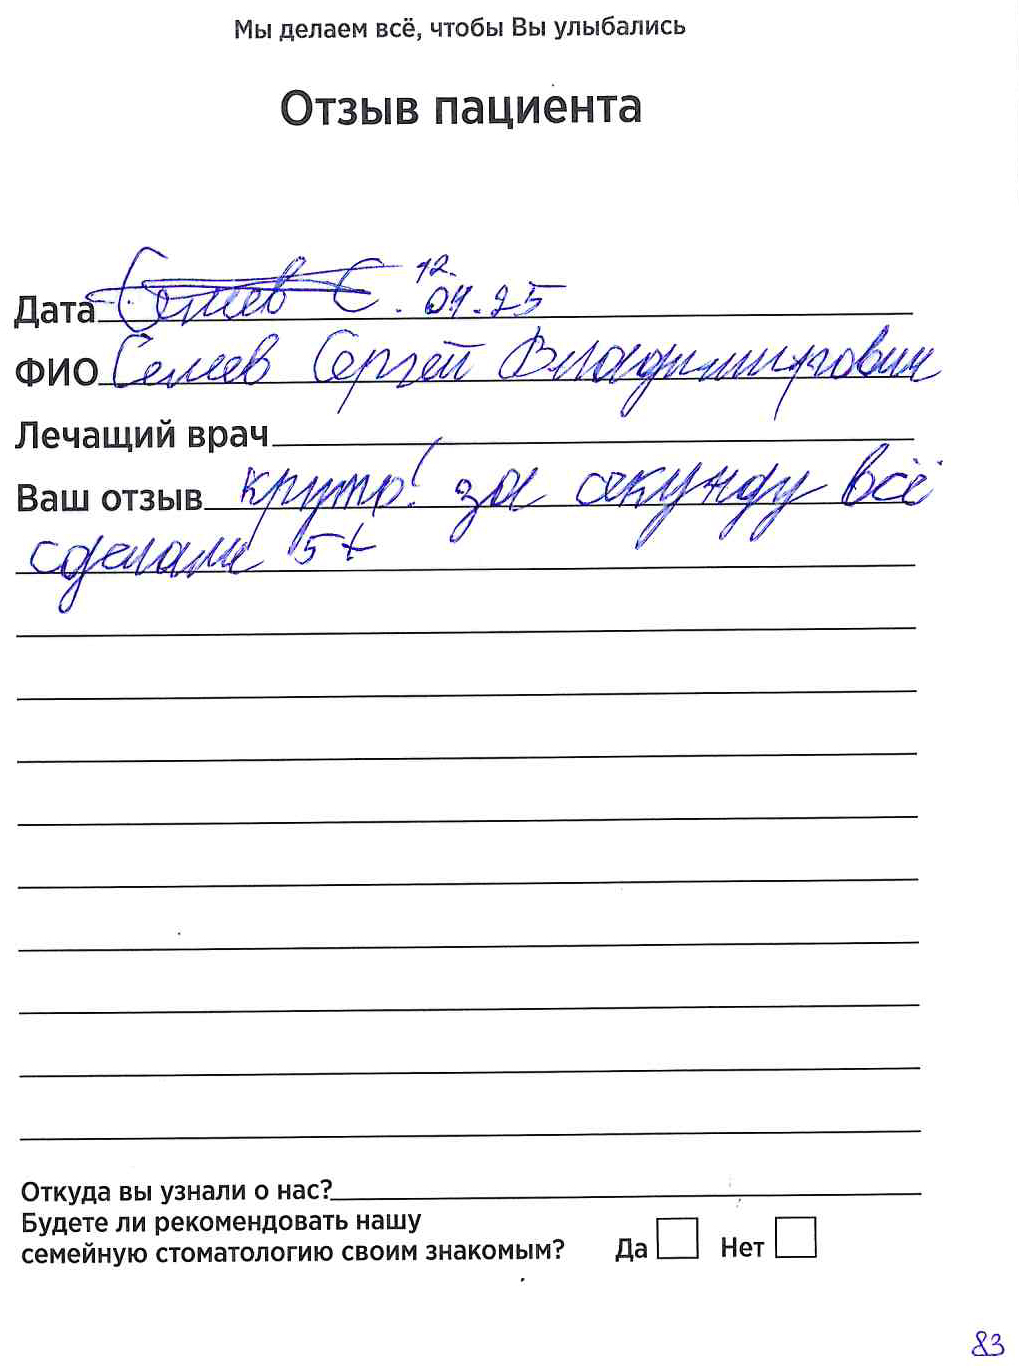 Мы делаем всё, чтобы Вы улыбались
Отзыв пациента
Дата 12.04.25
ФИО Сергей Владимирович
Лечащий врач
Ваш отзыв круто! за секунду всё
сделали 5+
Откуда вы узнали о нас?
Будете ли рекомендовать нашу
семейную стоматологию своим знакомым? Да Нет
83